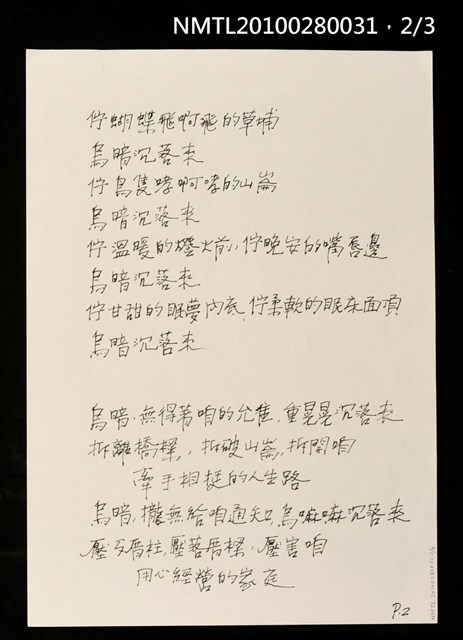 NMTL20100280031，2/3
佇蝴蝶飛啊飛的草埔
烏暗沉落來
佇鳥隻哮啊哮的山崙
烏暗沉落來
佇溫暖的燈火前，佇晚安的嘴唇邊
烏暗沉落來
佇甘甜的眠夢內底，佇柔軟的眠床面頂
烏暗沉落來
烏暗，無得著咱的允准，重晃晃沉落來
拆離橋樑，拆破山崙，拆開咱
牽手相挺的人生路
烏暗，攏無給咱通知，烏嘛嘛沉落來
壓歹厝柱，壓落厝樑，壓害咱
用心經營的家庭
P.2